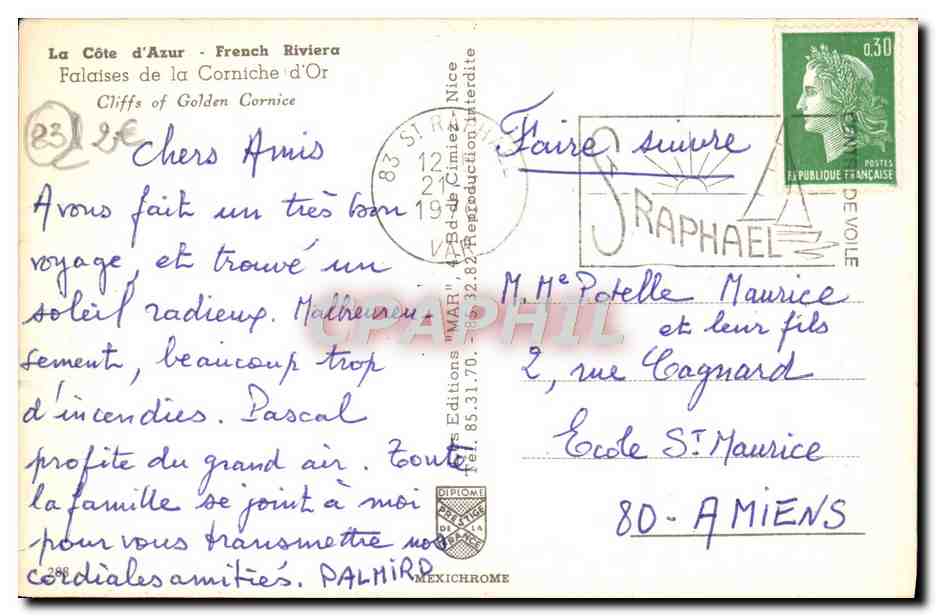 La Côte d'Azur - French Riviera
Falaises de la Corniche d'Or
Cliffs of Golden Cornice
83 2€
Chers Amis
Avons fait un très bon
voyage, et trouvé un
soleil radieux. Malheureu-
sement, beaucoup trop
d'incendies. Pascal
profite du grand air. Toute
la famille se joint à moi
pour vous transmettre nos
cordiales amitiés. PALMIRD
288
Les Editions "MAR", 4, Bd de Cimiez - Nice
Tél. 85.31.70. - 85.32.82 Reproduction interdite
DIPLOME
PRESTIGE
DE LA
FRANCE
MEXICHROME
83 ST RAPHAEL
12
21
19
VAR
ST RAPHAEL
DE VOILE
0,30
POSTES
REPUBLIQUE FRANÇAISE
Faire suivre
M. Me Potelle Maurice
et leur fils
2, rue Cagnard
Ecole St Maurice
80 - AMIENS
CPAPHIL